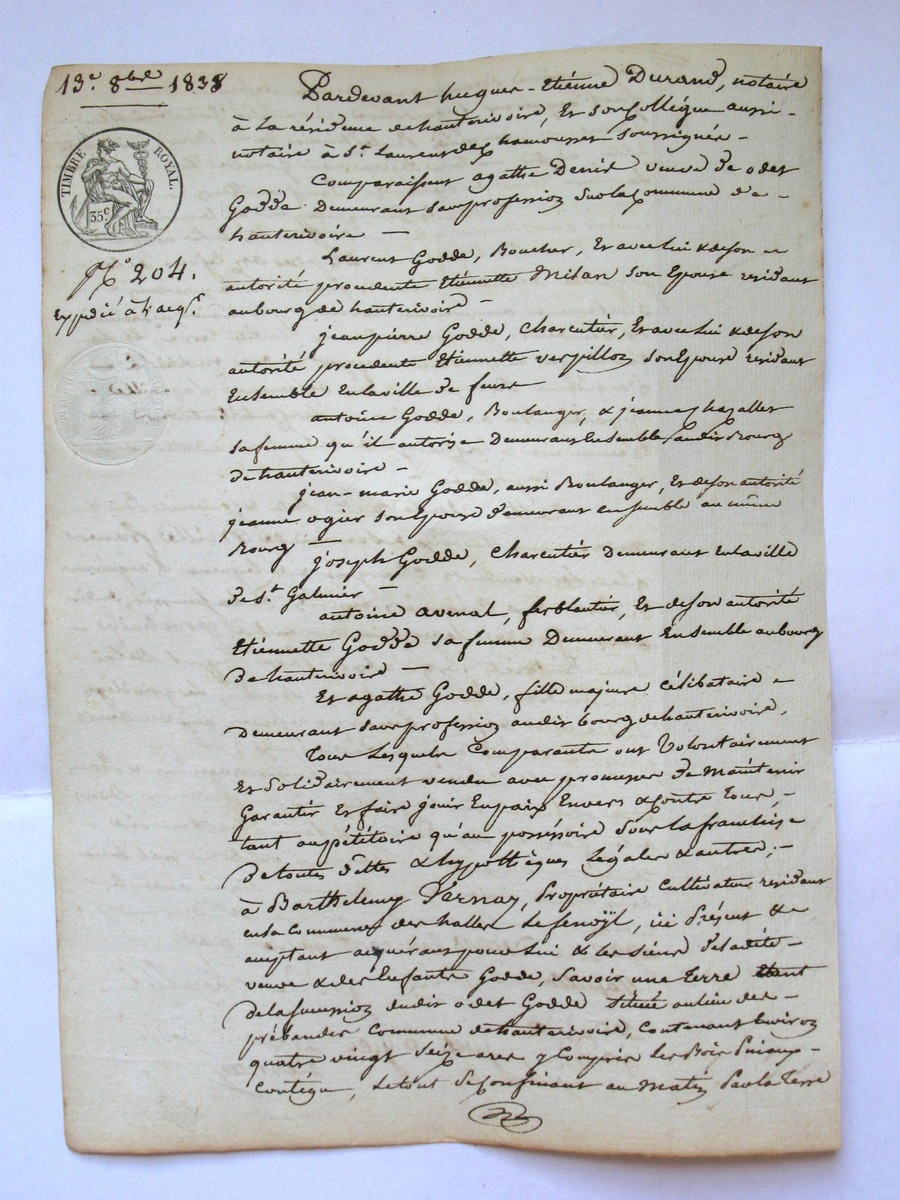 13.e 8bre 1838
TIMBRE ROYAL.
35c
N.o 204.
Expédié à l'acq.r
Pardevant Étienne Durand, notaire
à la résidence de hauterivoire, Et son Collégue aussi
notaire à St. Laurent de chamousset soussignés
Comparaissent agathe Denis veuve de odet
Godde Demeurant sans profession sur la Commune de
hauterivoire
Laurent Godde, Boucher, Et avec lui & de son
autorité procedente Etiennette Milan son Epouse residant
au bourg de hauterivoire
jean pierre Godde, Charentier, Et avec lui & de son
autorité procedente Etiennette verpilloz son Epouse residant
Ensemble En la ville de feurs
antoine Godde, Boulanger, & jeanne chazallet
sa femme qu'il autorise Demeurant Ensemble audit Bourg
de hauterivoire
jean-marie Godde, aussi Boulanger, Et de son autorité
jeanne ogier son Epouse demeurant ensemble au même
Bourg
joseph Godde, Charentier Demeurant En la ville
de St. Galmier
antoine avenal, ferblantier, Et de son autorité
Etiennette Godde sa femme Demeurant Ensemble au bourg
de hauterivoire
Et agathe Godde, fille majure célibataire
Demeurant sans profession audit bourg de hauterivoire,
Tous Lesquels Comparants ont Volontairement
Et Solidairement vendu avec promesse de Maintenir
Garantir Et faire jouir En paix Envers & Contre tous,
tant au pétitoire qu'au posséssoire sous la franchise
De toutes dettes & hypothèques légales & autres,
à Barthelemy Vernay, Propriétaire Cultivateur residant
en la Commune des halles Le fenoÿl, ici présent &
aceptant acquérant pour Lui & les siens de la dite
veuve & des Enfants Godde, Savoir une Terre
de la succession dudit odet Godde située au lieu des
prébandes Commune de hauterivoire, Contenant Environ
quatre vingt seize ares y Compris Les Bois
Contigu, Le tout se Confinant au Matin Par la Terre